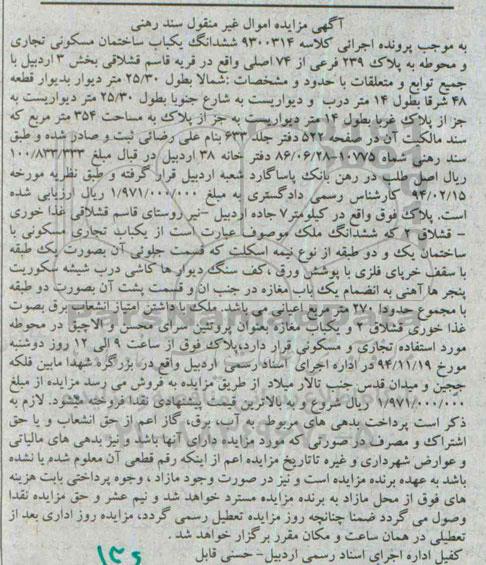 آگهی مزایده اموال غیر منقول سند رهنی
به موجب پرونده اجرائی کلاسه ۹۳۰۰۳۱۴ ششدانگ یکباب ساختمان مسکونی تجاری
و محوطه به پلاک ۲۳۹ فرعی از ۷۴ اصلی واقع در قریه قاسم قشلاقی بخش ۳ اردبیل با
جمیع توابع و متعلقات با حدود و مشخصات :شمالا بطول ۲۵/۳۰ متر دیوار بدیوار قطعه
۴۸ شرقا بطول ۱۴ متر درب و دیواریست به شارع جنوبا بطول ۲۵/۳۰ متر دیواریست به
جز از پلاک غربا بطول ۱۴ متر دیواریست به جز از پلاک به مساحت ۳۵۴ متر مربع که
سند مالکیت آن در صفحه ۵۲۲ دفتر جلد ۶۳۳ بنام علی رضائی ثبت و صادر شده و طبق
سند رهنی شماه ۱۰۷۷۵-۸۶/۰۶/۲۸ دفتر خانه ۳۸ اردبیل در قبال مبلغ ۱۰۰/۸۳۳/۳۳۳
ریال اصل طلب در رهن بانک پاساگارد شعبه اردبیل قرار گرفته و طبق نظریه مورخه
۹۴/۰۲/۱۵ کارشناس رسمی دادگستری به مبلغ ۱/۹۷۱/۰۰۰/۰۰۰ ریال ارزیابی شده
است. پلاک فوق واقع در کیلومتر۷ جاده اردبیل -نیر روستای قاسم قشلاقی غذا خوری
- قشلاق ۲ که ششدانگ ملک موصوف عبارت است از یکباب تجاری مسکونی با
ساختمان یک و دو طبقه از نوع نیمه اسکلت که قسمت جلوئی آن بصورت یک طبقه
با سقف خرپای فلزی با پوشش ورق ،کف سنگ دیوار ها کاشی درب شیشه سکوریت
پنجر ها آهنی به انضمام یک باب مغازه در جنب ان و قسمت پشت آن بصورت دو طبقه
با مجموع حدودا ۲۷۰ متر مربع اعیانی می باشد. ملک با داشتن امتیاز انشعاب برق بصوت
غذا خوری قشلاق ۲ و یکباب مغازه بعنوان پروتئین سرای محسن و الاچیق در محوطه
مورد استفاده تجاری و مسکونی قرار دارد،پلاک فوق از ساعت ۹ الی ۱۲ روز دوشنبه
مورخ ۹۴/۱۱/۱۹ در اداره اجرای اسناد رسمی اردبیل واقع در بزرگره شهدا مابین فلکه
ججین و میدان قدس جنب تالار میلاد از طریق مزایده به فروش می رسد مزایده از مبلغ
۱/۹۷۱/۰۰۰/۰۰۰ ریال شروع و به بالاترین قیمت پیشنهادی نقدا فروخته میشود. لازم به
ذکر است پرداخت بدهی های مربوطی به آب، برق، گاز اعم از حق انشعاب و یا حق
اشتراک و مصرف در صورتی که مورد مزایده دارای آنها باشد و نیز بدهی های مالیاتی
و عوارض شهرداری و غیره تاتاریخ مزایده اعم از اینکه رقم قطعی آن معلوم شده یا نشده
باشد به عهده برنده مزایده است و نیز در صورت وجود مازاد ، وجوه پرداختی بابت هزینه
های فوق از محل مازاد به برنده مزایده مسترد خواهد شد و نیم عشر و حق مزایده نقدا
وصول می گردد ضمنا چنانچه روز مزایده تعطیل رسمی گردد، مزایده روز اداری بعد از
تعطیلی در همان ساعت و مکان مقرر برگزار خواهد شد .
کفیل اداره اجرای اسناد رسمی اردبیل- حسنی قابل